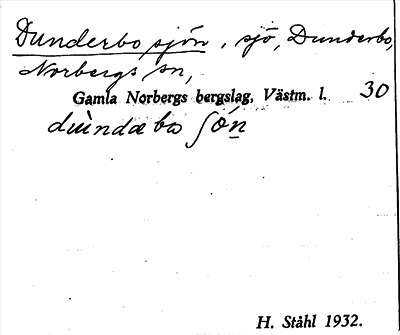 Dunderbo sjön, sjö, Dunderbo,
Norbergs sn,
Gamla Norbergs bergslag, Västm. l. 30
dùndæbo ʃón
H. Ståhl 1932.